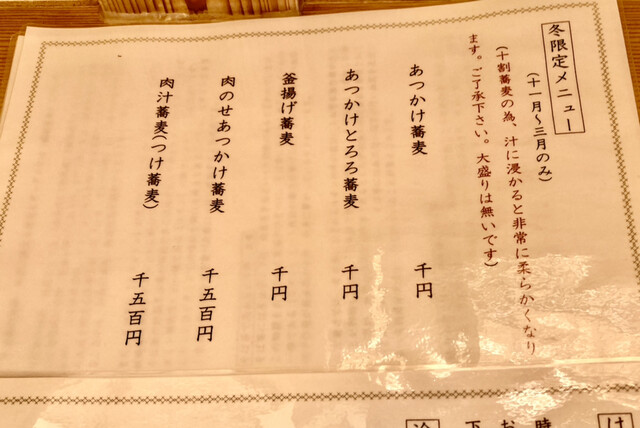 冬限定メニュー
(十一月～三月のみ)
(十割蕎麦の為、汁に浸かると非常に柔らかくなり
ます。ご了承下さい。大盛りは無いです)
あつかけ蕎麦 千円
あつかけとろろ蕎麦 千円
釜揚げ蕎麦 千円
肉のせあつかけ蕎麦 千五百円
肉汁蕎麦(つけ蕎麦) 千五百円
け
時
お
下
冷